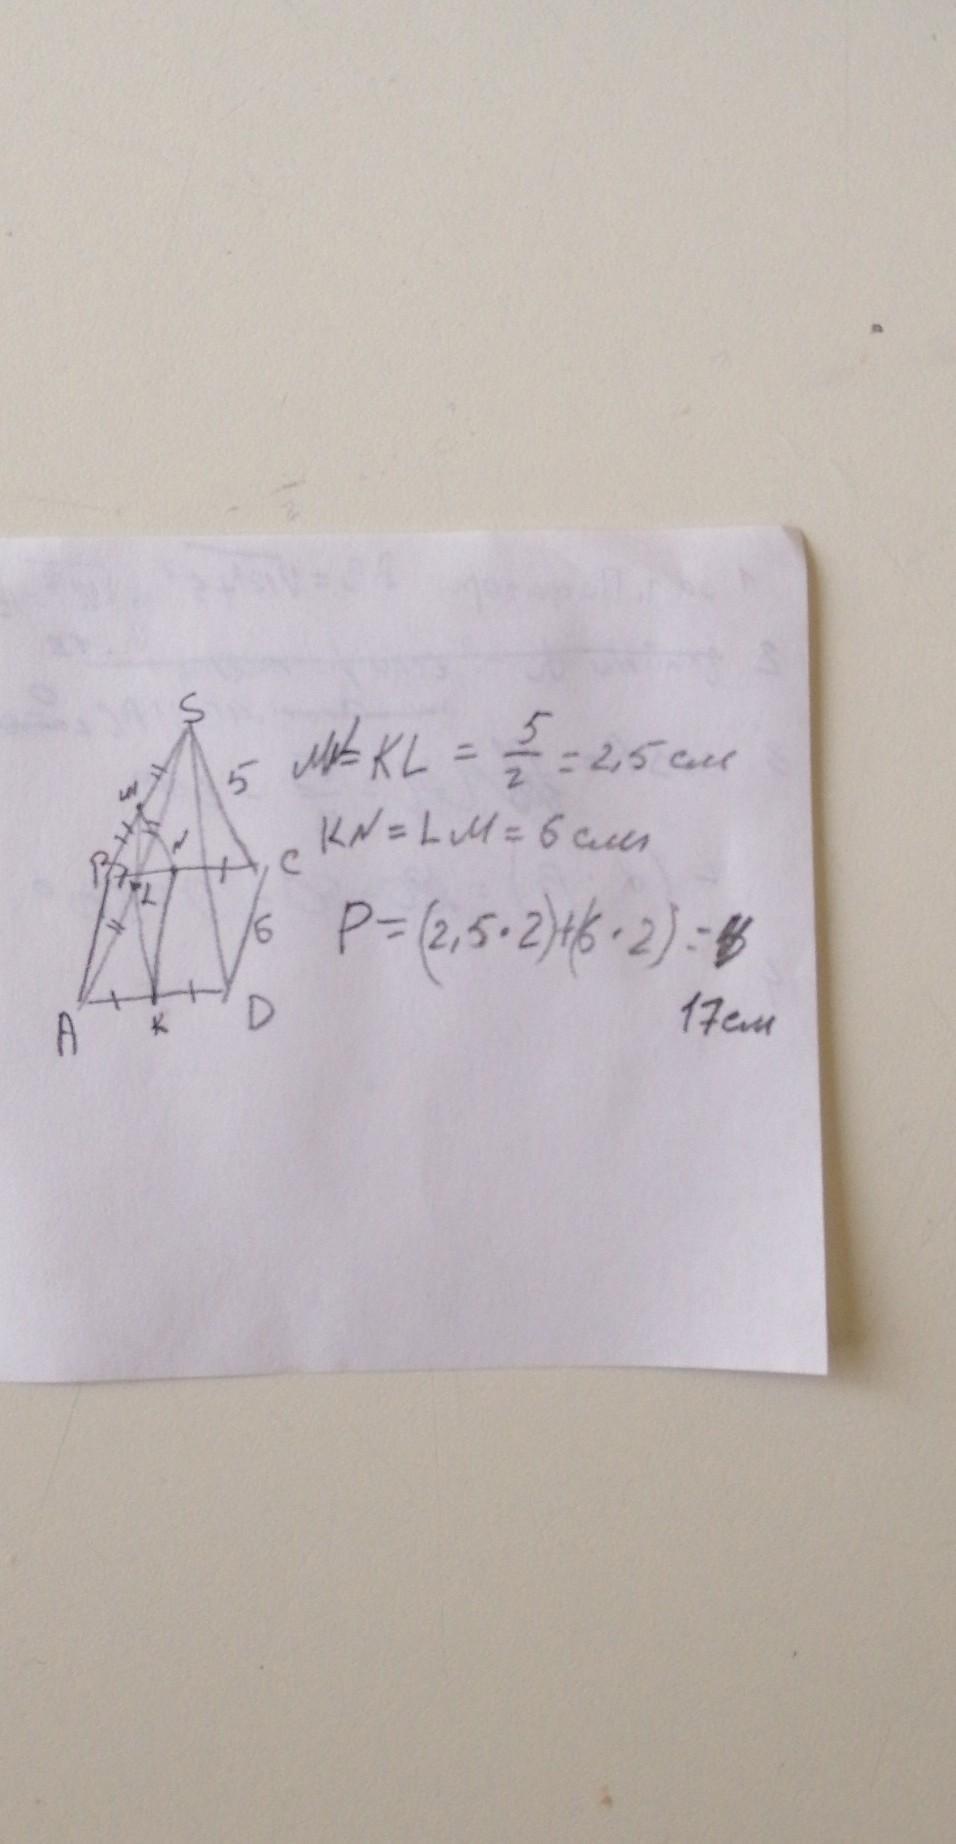 S
5
M
N
B
C
L
6
A
K
D
MN=KL = 5/2 = 2,5 см
KN = LM = 6 см
P = (2,5·2)+(6·2) =
17см